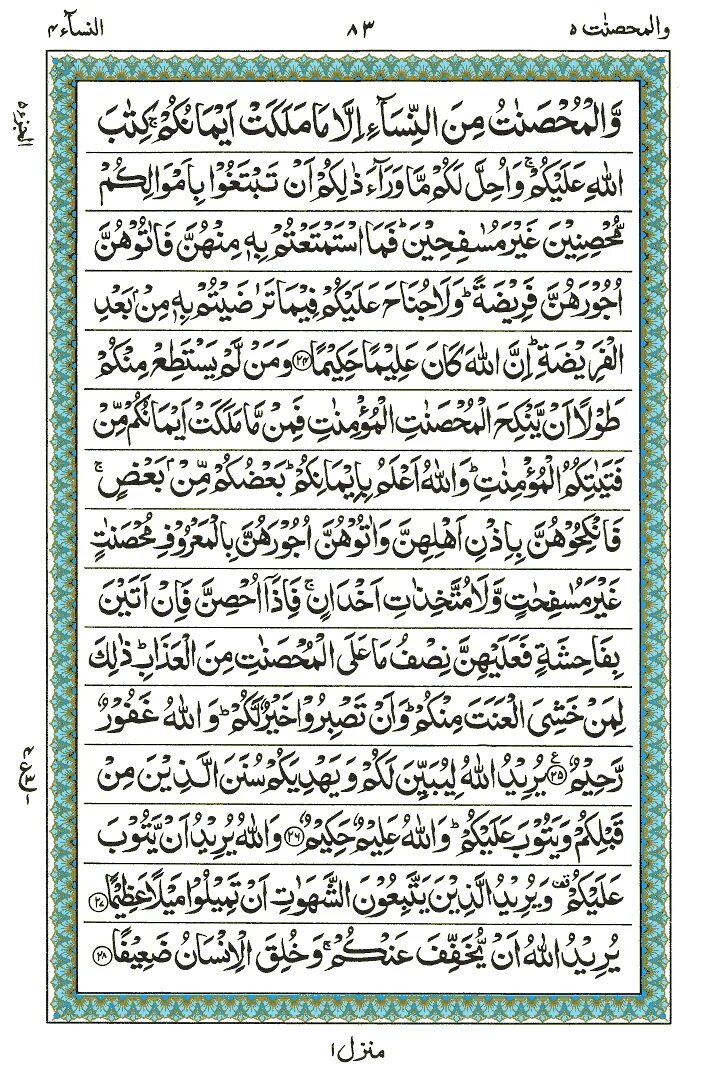 والمحصنٰت ٥
٨٣
النسآء ٤
الجزء ٥
وَّالْمُحْصَنٰتُ مِنَ النِّسَآءِ اِلَّا مَا مَلَكَتْ اَيْمَانُكُمْ ۚ كِتٰبَ
اللّٰهِ عَلَيْكُمْ ۚ وَاُحِلَّ لَكُمْ مَّا وَرَآءَ ذٰلِكُمْ اَنْ تَبْتَغُوْا بِاَمْوَالِكُمْ
مُّحْصِنِيْنَ غَيْرَ مُسٰفِحِيْنَ ؕ فَمَا اسْتَمْتَعْتُمْ بِهٖ مِنْهُنَّ فَاٰتُوْهُنَّ
اُجُوْرَهُنَّ فَرِيْضَةً ؕ وَلَا جُنَاحَ عَلَيْكُمْ فِيْمَا تَرٰضَيْتُمْ بِهٖ مِنْۢ بَعْدِ
الْفَرِيْضَةِ ؕ اِنَّ اللّٰهَ كَانَ عَلِيْمًا حَكِيْمًا ۝٢٤ وَمَنْ لَّمْ يَسْتَطِعْ مِنْكُمْ
طَوْلًا اَنْ يَّنْكِحَ الْمُحْصَنٰتِ الْمُؤْمِنٰتِ فَمِنْ مَّا مَلَكَتْ اَيْمَانُكُمْ مِّنْ
فَتَيٰتِكُمُ الْمُؤْمِنٰتِ ؕ وَاللّٰهُ اَعْلَمُ بِاِيْمَانِكُمْ ؕ بَعْضُكُمْ مِّنْۢ بَعْضٍ ۚ
فَانْكِحُوْهُنَّ بِاِذْنِ اَهْلِهِنَّ وَاٰتُوْهُنَّ اُجُوْرَهُنَّ بِالْمَعْرُوْفِ مُحْصَنٰتٍ
غَيْرَ مُسٰفِحٰتٍ وَّلَا مُتَّخِذٰتِ اَخْدَانٍ ۚ فَاِذَاۤ اُحْصِنَّ فَاِنْ اَتَيْنَ
بِفَاحِشَةٍ فَعَلَيْهِنَّ نِصْفُ مَا عَلَى الْمُحْصَنٰتِ مِنَ الْعَذَابِ ؕ ذٰلِكَ
لِمَنْ خَشِيَ الْعَنَتَ مِنْكُمْ ؕ وَاَنْ تَصْبِرُوْا خَيْرٌ لَّكُمْ ؕ وَاللّٰهُ غَفُوْرٌ
رَّحِيْمٌ ۝٢٥ ع يُرِيْدُ اللّٰهُ لِيُبَيِّنَ لَكُمْ وَيَهْدِيَكُمْ سُنَنَ الَّذِيْنَ مِنْ
قَبْلِكُمْ وَيَتُوْبَ عَلَيْكُمْ ؕ وَاللّٰهُ عَلِيْمٌ حَكِيْمٌ ۝٢٦ وَاللّٰهُ يُرِيْدُ اَنْ يَّتُوْبَ
عَلَيْكُمْ ۫ وَيُرِيْدُ الَّذِيْنَ يَتَّبِعُوْنَ الشَّهَوٰتِ اَنْ تَمِيْلُوْا مَيْلًا عَظِيْمًا ۝٢٧
يُرِيْدُ اللّٰهُ اَنْ يُّخَفِّفَ عَنْكُمْ ۚ وَخُلِقَ الْاِنْسَانُ ضَعِيْفًا ۝٢٨
منزل ١